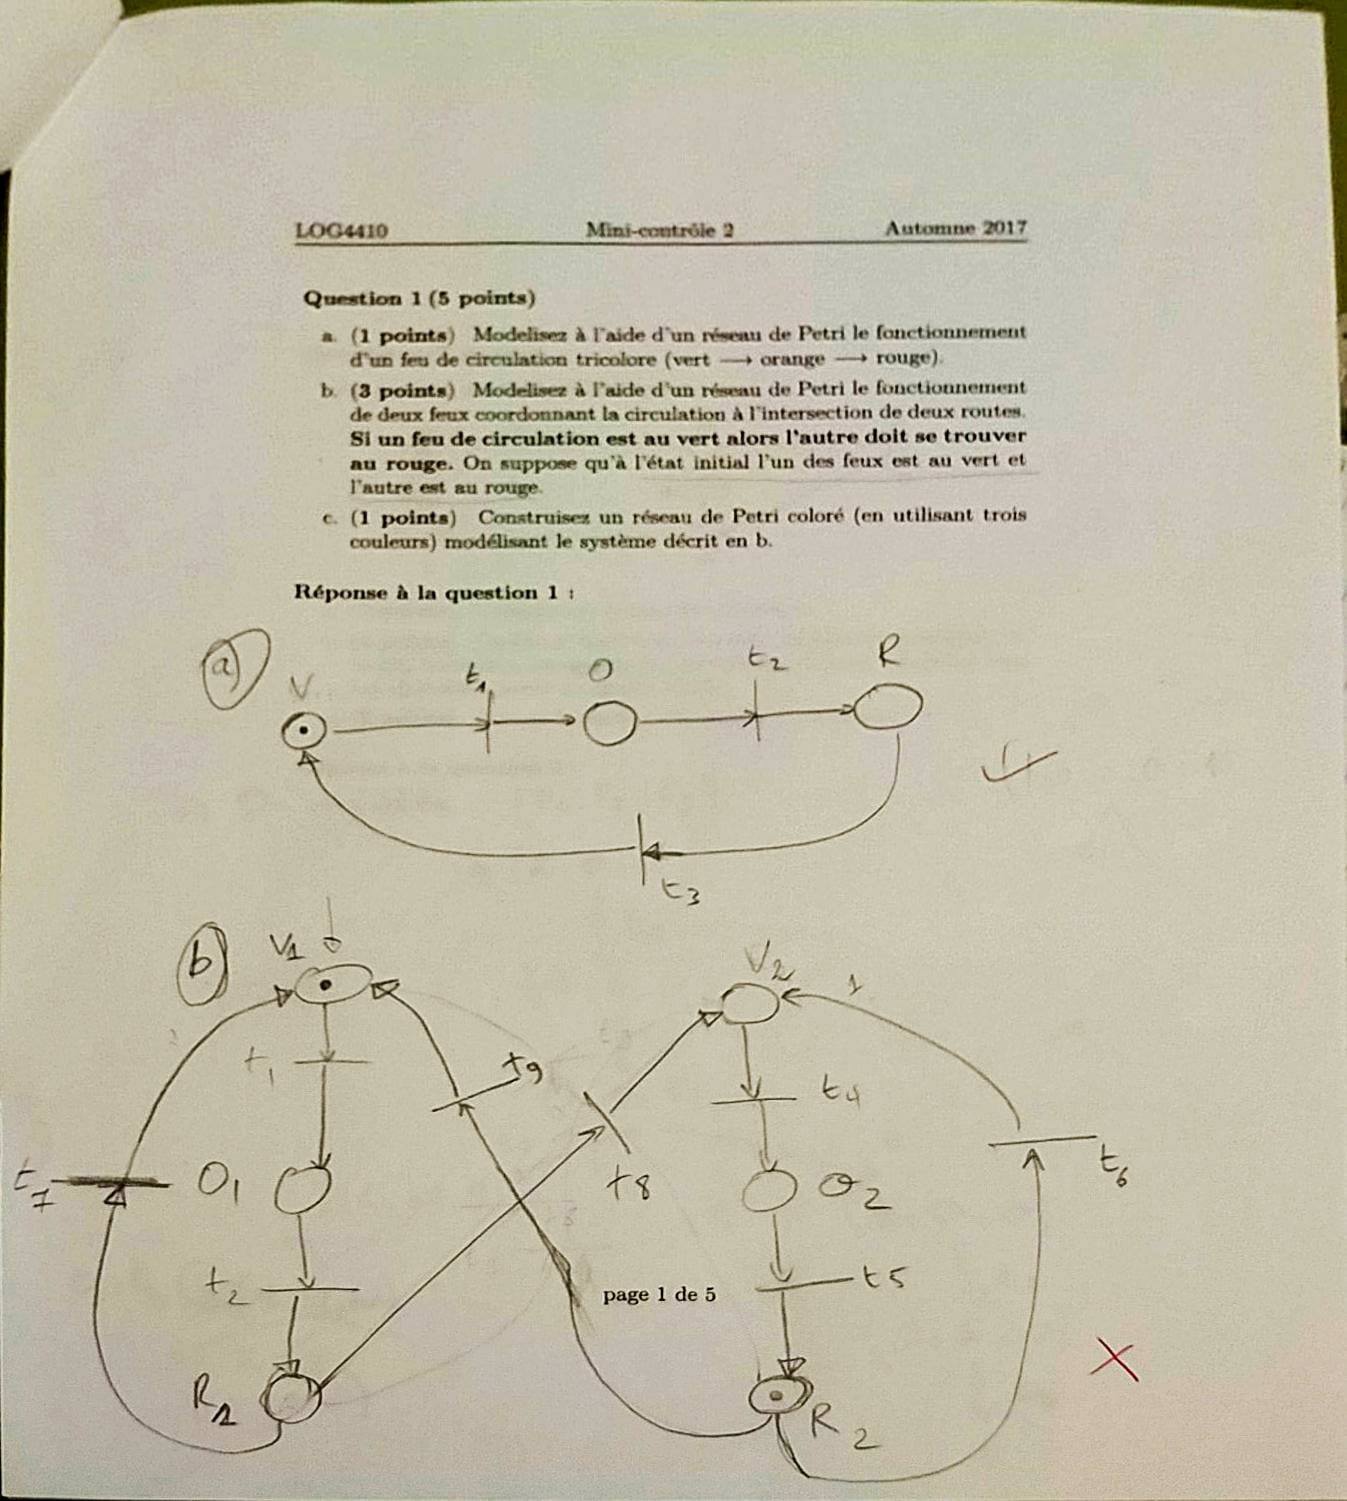 LOG4410 Mini-contrôle 2 Automne 2017
Question 1 (5 points)
a. (1 points) Modelisez à l'aide d'un réseau de Petri le fonctionnement
d'un feu de circulation tricolore (vert ⟶ orange ⟶ rouge).
b. (3 points) Modelisez à l'aide d'un réseau de Petri le fonctionnement
de deux feux coordonnant la circulation à l'intersection de deux routes.
Si un feu de circulation est au vert alors l'autre doit se trouver
au rouge. On suppose qu'à l'état initial l'un des feux est au vert et
l'autre est au rouge.
c. (1 points) Construisez un réseau de Petri coloré (en utilisant trois
couleurs) modélisant le système décrit en b.
Réponse à la question 1 :
a)
V t1 O t2 R
t3
b) V1 V2
1
t1 t9 t4
t7 O1 t8 O2 t6
t2 page 1 de 5 t5
R1 R2